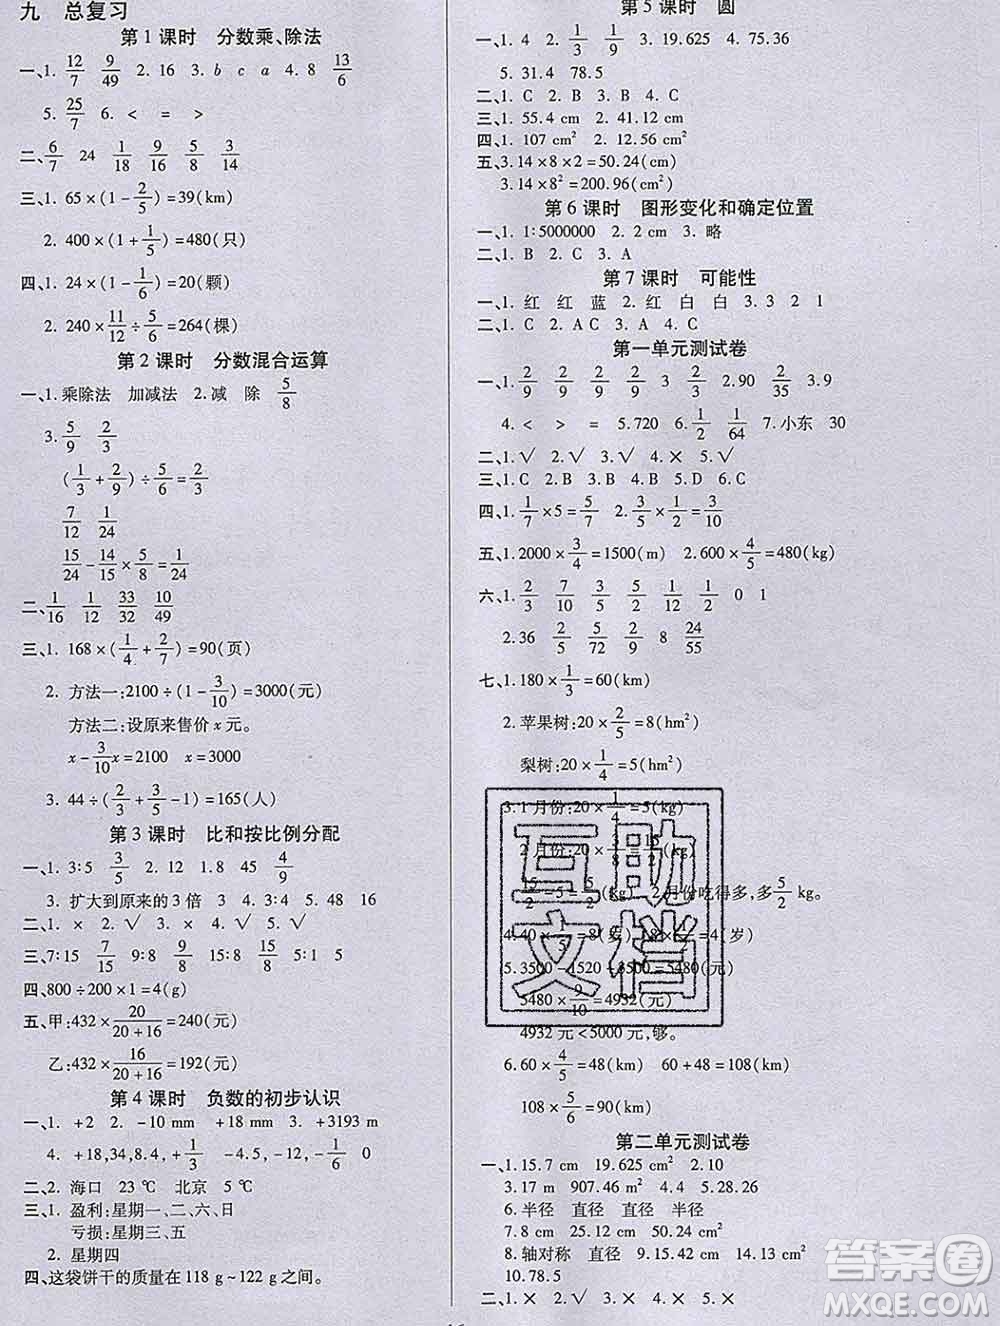 九 总复习
第1课时 分数乘、除法
一、1. 12/7 9/49 2. 16 3. b c a 4. 8 13/6
5. 25/7 6. < = >
二、6/7 24 1/18 9/16 5/8 3/14
三、1. 65×(1-2/5)=39(km)
2. 400×(1+1/5)=480(只)
四、1. 24×(1-1/6)=20(颗)
2. 240×11/12÷5/6=264(棵)
第2课时 分数混合运算
一、1. 乘除法 加减法 2. 减 除 5/8
3. 5/9 2/3
(1/3+2/9)÷5/6=2/3
7/12 1/24
15/24-14/15×5/8=1/24
二、1/16 1/12 33/32 10/49
三、1. 168×(1/4+2/7)=90(页)
2. 方法一:2100÷(1-3/10)=3000(元)
方法二:设原来售价x元。
x-3/10x=2100 x=3000
3. 44÷(2/3+3/5-1)=165(人)
第3课时 比和按比例分配
一、1. 3∶5 3/5 2. 12 1.8 45 4/9
3. 扩大到原来的3倍 3. 4 5. 48 16
二、1. × 2. √ 3. × 4. √ 5. √
三、7∶15 7/15 9∶8 9/8 15∶8 15/8
四、800÷200×1=4(g)
五、甲:432×20/(20+16)=240(元)
乙:432×16/(20+16)=192(元)
第4课时 负数的初步认识
一、1. +2 2. -10 mm +18 mm 3. +3193 m
4. +18,34,8.4,+1/3 -9,-12,-1/3 0
二、2. 海口 23 ℃ 北京 5 ℃
三、1. 盈利:星期一、二、六、日
亏损:星期三、五
2. 星期四
四、这袋饼干的质量在118 g~122 g之间。
第5课时 圆
一、1. 4 2. 1/3 1/9 3. 19.625 4. 75.36
5. 31.4 78.5
二、1. C 2. B 3. A 4. C
三、1. 55.4 cm 2. 41.12 cm
四、1. 107 cm² 2. 12.56 cm²
五、3.14×8×2=50.24(cm)
3.14×8²=200.96(cm²)
第6课时 图形变化和确定位置
一、1. 1∶5000000 2. 2 cm 3. 略
二、1. B 2. C 3. A
第7课时 可能性
一、1. 红 红 蓝 2. 红 白 白 3. 3 2 1
二、1. C 2. A C 3. A 4. C
第一单元测试卷
一、1. 2/9 2/9 3 2/3 2.90 2/35 3.9
4. < > = 5.720 6. 1/2 1/64 7. 小东 30
二、1.√ 2.√ 3.√ 4.× 5.√
三、1. C 2. B 3. A 4. B 5. D 6. C
四、1. 1/7×5=5/7 2. 3/5×1/2=3/10
五、1. 2000×3/4=1500(m) 2. 600×4/5=480(kg)
六、1. 2/3 7/10 5/24 1/2 1/2 0 1
2. 36 2/5 2/5 8 24/55
七、1. 180×1/3=60(km)
2. 苹果树:20×2/5=8(hm²)
梨树:20×1/4=5(hm²)
3. 1月份:20×1/4=5(kg)
2月份:20×3/8=15/2(kg)
15/2-5=5/2(kg) 2月份吃得多,多5/2 kg。
5. 3500-1520+3500=5480(元)
5480×9/10=4932(元)
4932元<5000元,够。
6. 60×4/5=48(km) 60+48=108(km)
108×5/6=90(km)
第二单元测试卷
一、1. 15.7 cm 19.625 cm² 2. 10
3. 17 m 907.46 m² 4. 5 5. 28.26
6. 半径 直径 直径 半径
7. 8 cm 25.12 cm 50.24 cm²
8. 轴对称 直径 9. 15.42 cm 14.13 cm²
10. 78.5
二、1.× 2.√ 3.√ 4.× 5.×
互助
文档
答案圈
MXQE.COM